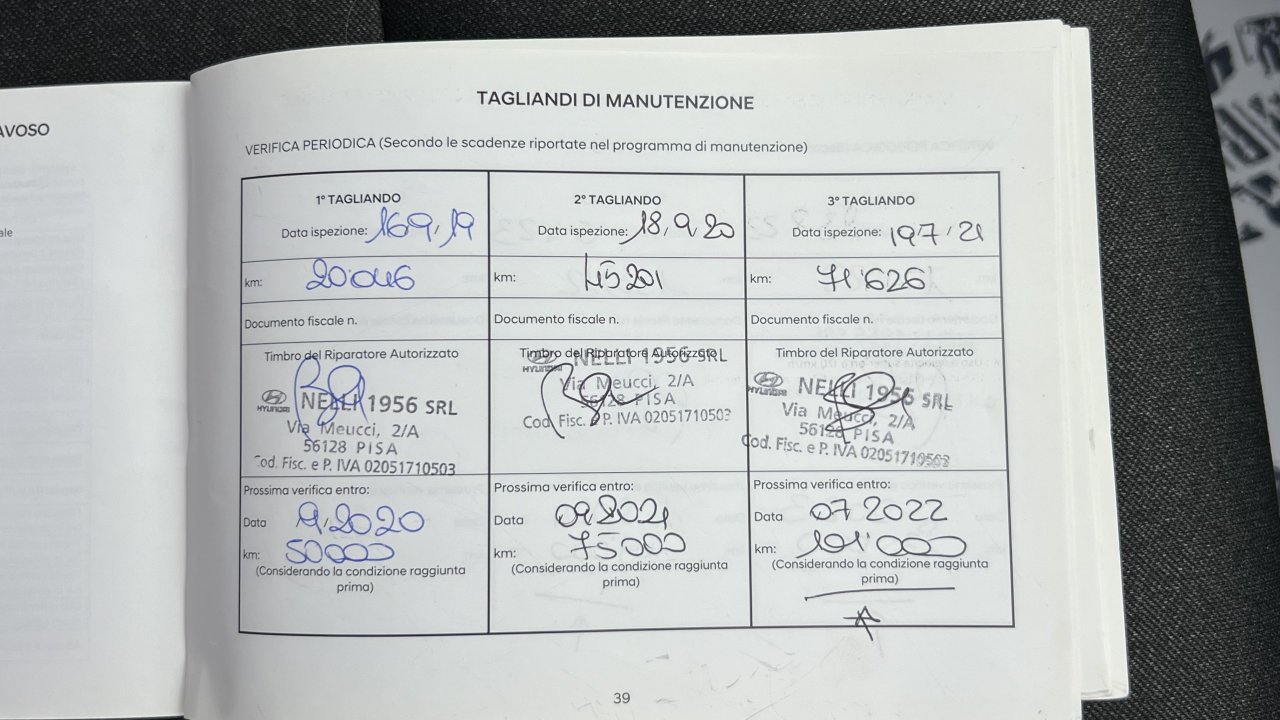 AVOSO
ale
TAGLIANDI DI MANUTENZIONE
VERIFICA PERIODICA (Secondo le scadenze riportate nel programma di manutenzione)
1° TAGLIANDO
Data ispezione: 16 9, 19
km: 20'046
Documento fiscale n.
Timbro del Riparatore Autorizzato
HYUNDAI NELLI 1956 SRL
Via Meucci, 2/A
56128 PISA
Cod. Fisc. e P. IVA 02051710503
Prossima verifica entro:
Data 9,2020
km: 50000
(Considerando la condizione raggiunta
prima)
2° TAGLIANDO
Data ispezione: 18, 9, 20
km: 45 201
Documento fiscale n.
Timbro del Riparatore Autorizzato
HYUNDAI NELLI 1956 SRL
Via Meucci, 2/A
56128 PISA
Cod. Fisc. e P. IVA 02051710503
Prossima verifica entro:
Data 09,2021
km: 75000
(Considerando la condizione raggiunta
prima)
3° TAGLIANDO
Data ispezione: 19 7 '21
km: 71'626
Documento fiscale n.
Timbro del Riparatore Autorizzato
HYUNDAI NELLI 1956 SRL
Via Meucci, 2/A
56128 PISA
Cod. Fisc. e P. IVA 02051710503
Prossima verifica entro:
Data 07 2022
km: 101'000
(Considerando la condizione raggiunta
prima)
39